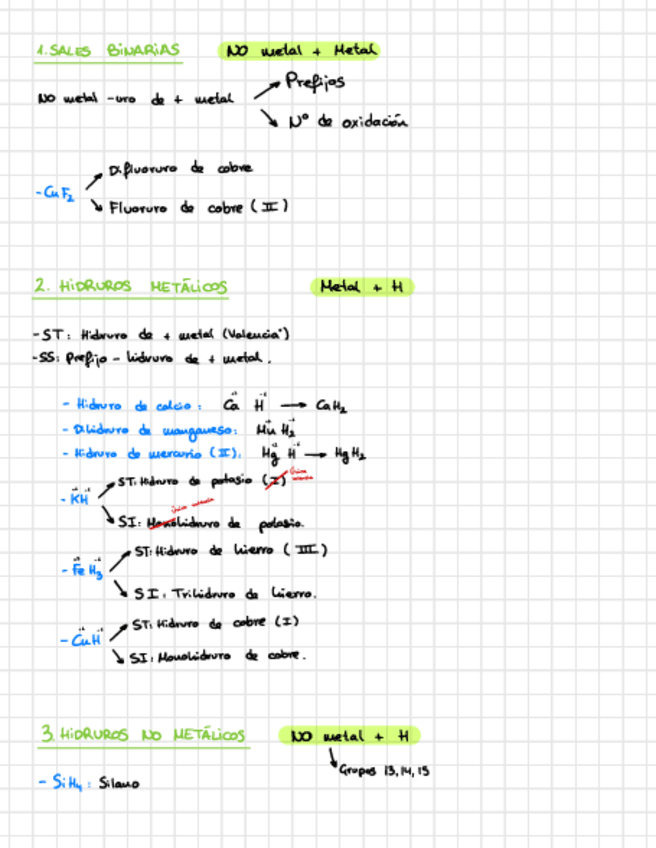 1. SALES BINARIAS NO metal + Metal
Prefijos
NO metal -uro de + metal
Nº de oxidación
Difluoruro de cobre
- CuF₂
Fluoruro de cobre (II)
2. HIDRUROS METÁLICOS Metal + H
- ST: Hidruro de + metal (Valencia)
- SS: Prefijo - hidruro de + metal.
- Hidruro de calcio: Ca H → CaH₂
- Dihidruro de manganeso: Mn H₂
- Hidruro de mercurio (II): Hg H → HgH₂
ST: Hidruro de potasio (I) única valencia
- KH
única valencia
SI: Monohidruro de potasio.
ST: Hidruro de hierro (III)
- FeH₃
SI: Trihidruro de hierro.
ST: Hidruro de cobre (I)
- CuH
SI: Monohidruro de cobre.
3. HIDRUROS NO METÁLICOS NO metal + H
Grupos 13, 14, 15
- SiH₄: Silano